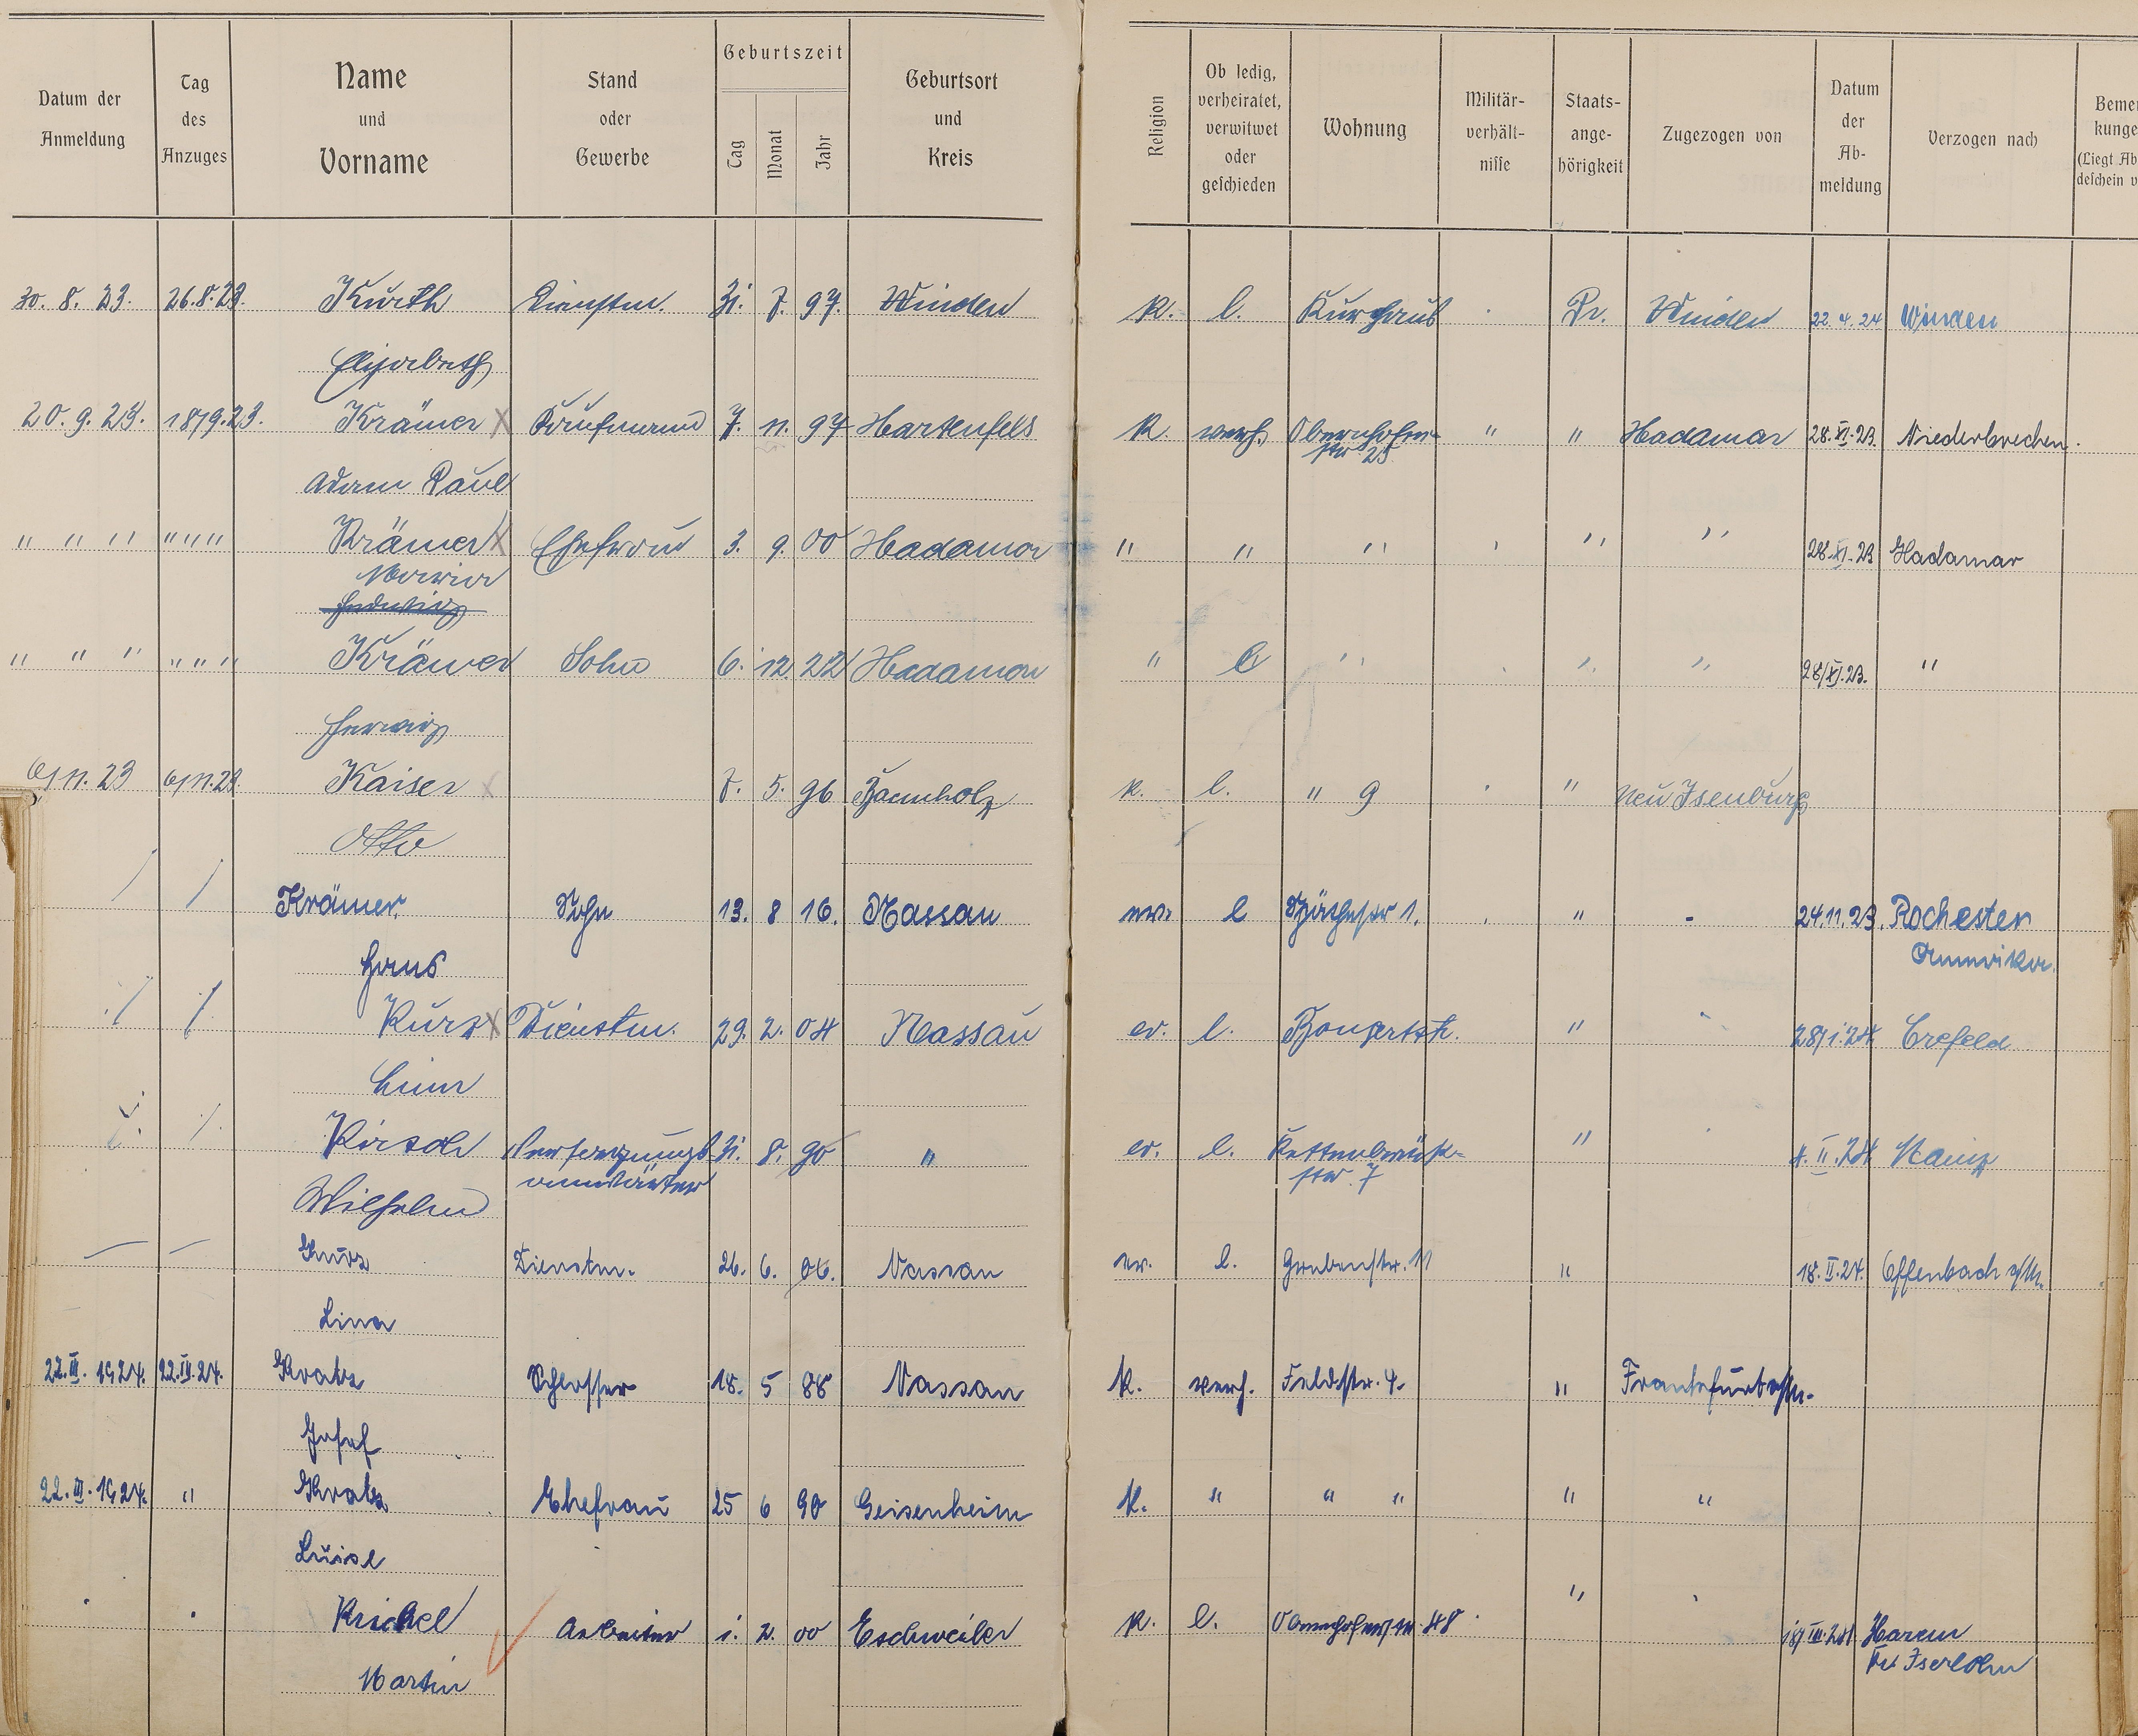 Datum der Anmeldung | Tag des Anzuges | Name und Vorname | Stand oder Gewerbe | Geburtszeit Tag Monat Jahr | Geburtsort und Kreis | Religion | Ob ledig, verheiratet, verwitwet oder geschieden | Wohnung | Militär-verhält-nisse | Staats-ange-hörigkeit | Zugezogen von | Datum der Ab-meldung | Verzogen nach | Beme kunge (Liegt Ab deschein v
30. 8. 23. 26.8.23. Kurth Dienstm. 31. 7. 97. Winden K. l. Kurhaus Pr. Winden 22.4.24 Winden
Elisabeth
20. 9. 23. 18/9.23. Krämer Kaufmann 7. 11. 97 Hartenfels K. verh. Obernhofer- " " Hadamar 28.XI.23. Niederbrechen.
str. 25
Adam Paul
" " " " " " Krämer Ehefrau 3. 9. 00 Hadamar " " " " " 28.XI.23 Hadamar
Maria
" " " " " " Krämer Sohn 6. 12. 22 Hadamar " l " " " 28/XI.23. "
Herwig
6/11.23 6/11.23. Kaiser 7. 5. 96 Bannholz K. l. " 9 " Neu Isenburg
Otto
/ / Krämer Sohn 13. 8 16. Nassau ev. l Späthestr 1. " - 24.11.23. Rochester
Hans Amerika.
/ / Kurz Dienstm. 29. 2. 04 Nassau ev. l. Bongertstr. " " 28/1.24 Crefeld
Lina
/. /. Kirsch Versorgungs- 31. 8. 90 " ev. l. Kettenbrück- " 4.II.24 Mainz
anwärter str. 7
Wilhelm
— — Kurz Dienstm. 26. 6. 06. Nassau ev. l. Grabenstr. 11 " 18.II.24. Offenbach a/M.
Lina
22.III.1924. 22.III.24. Kratz Schlosser 18. 5 88 Nassau K. verh. Feldstr. 4. " Frankfurt a/M.
Josef
22.III.1924. " Kratz Ehefrau 25 6 90 Geisenheim K. " " " " "
Luise
Krichel Arbeiter 1. 2. 00 Eschweiler K. l. Obernhoferstr. 48 " 18/III.24 Harem
Martin Kr. Iserlohn